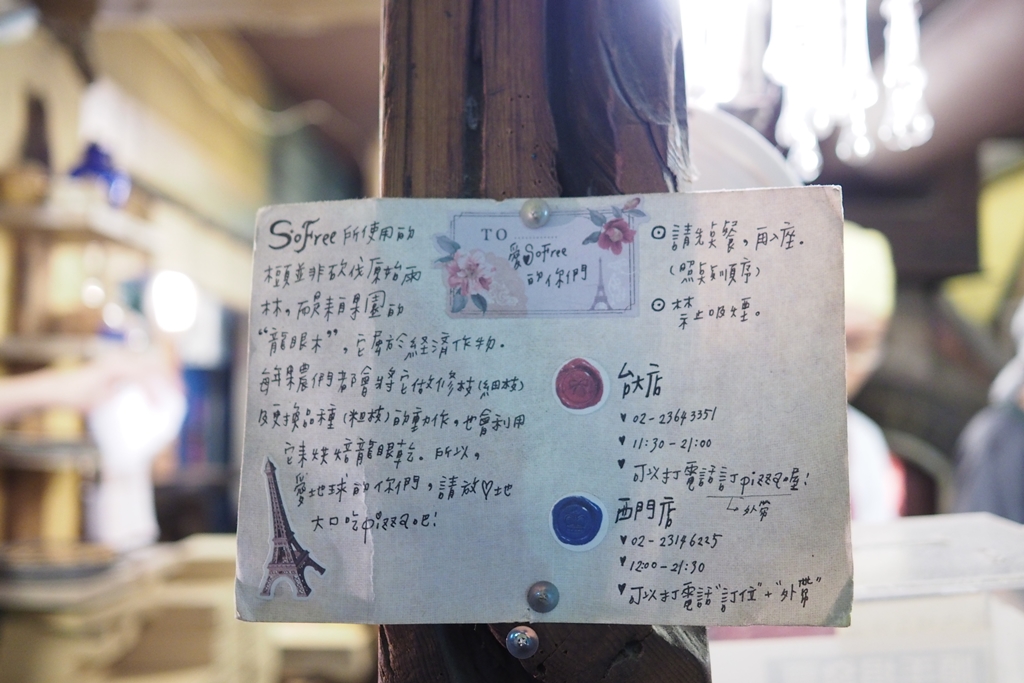 SoFree 所使用的
木頭並非砍伐原始雨
林，而是來自果園的
“龍眼木”，它屬於經濟作物.
每年果農們都會將它做修枝(細枝)
及更換品種(粗枝)的動作,也會利用
它來烘焙龍眼乾. 所以,
愛地球的你們，請放♡地
大口吃pizza吧!
TO
愛SoFree
的你們
⊙ 請先點餐，再入座.
(照點餐順序)
⊙ 禁止吸煙。
台大店
♥ 02-23643351
♥ 11:30-21:00
♥ 可以打電話訂pizza喔!
↳外帶
西門店
♥ 02-23146225
♥ 12:00-21:30
♥ 可以打電話“訂位”+“外帶”